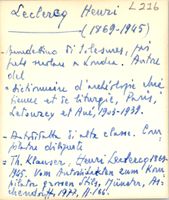 Leclercq Henri L216
(1869-1945)
- benedettino di Solesmes, poi
secolare a Londra. Autore
del
- dictionnaire d'archéologie chré
tienne et de liturgie, Paris,
Letouzey et Ané, 1903-1938.
- Autodidatta di alta classe. Com
pilatore di
- Th. Klauser, Henri Leclercq 1869-
1945. Vom Autodidakten zum Kom
pilator grossen Stils, Münster, As
chendorff 1977, p. 166.